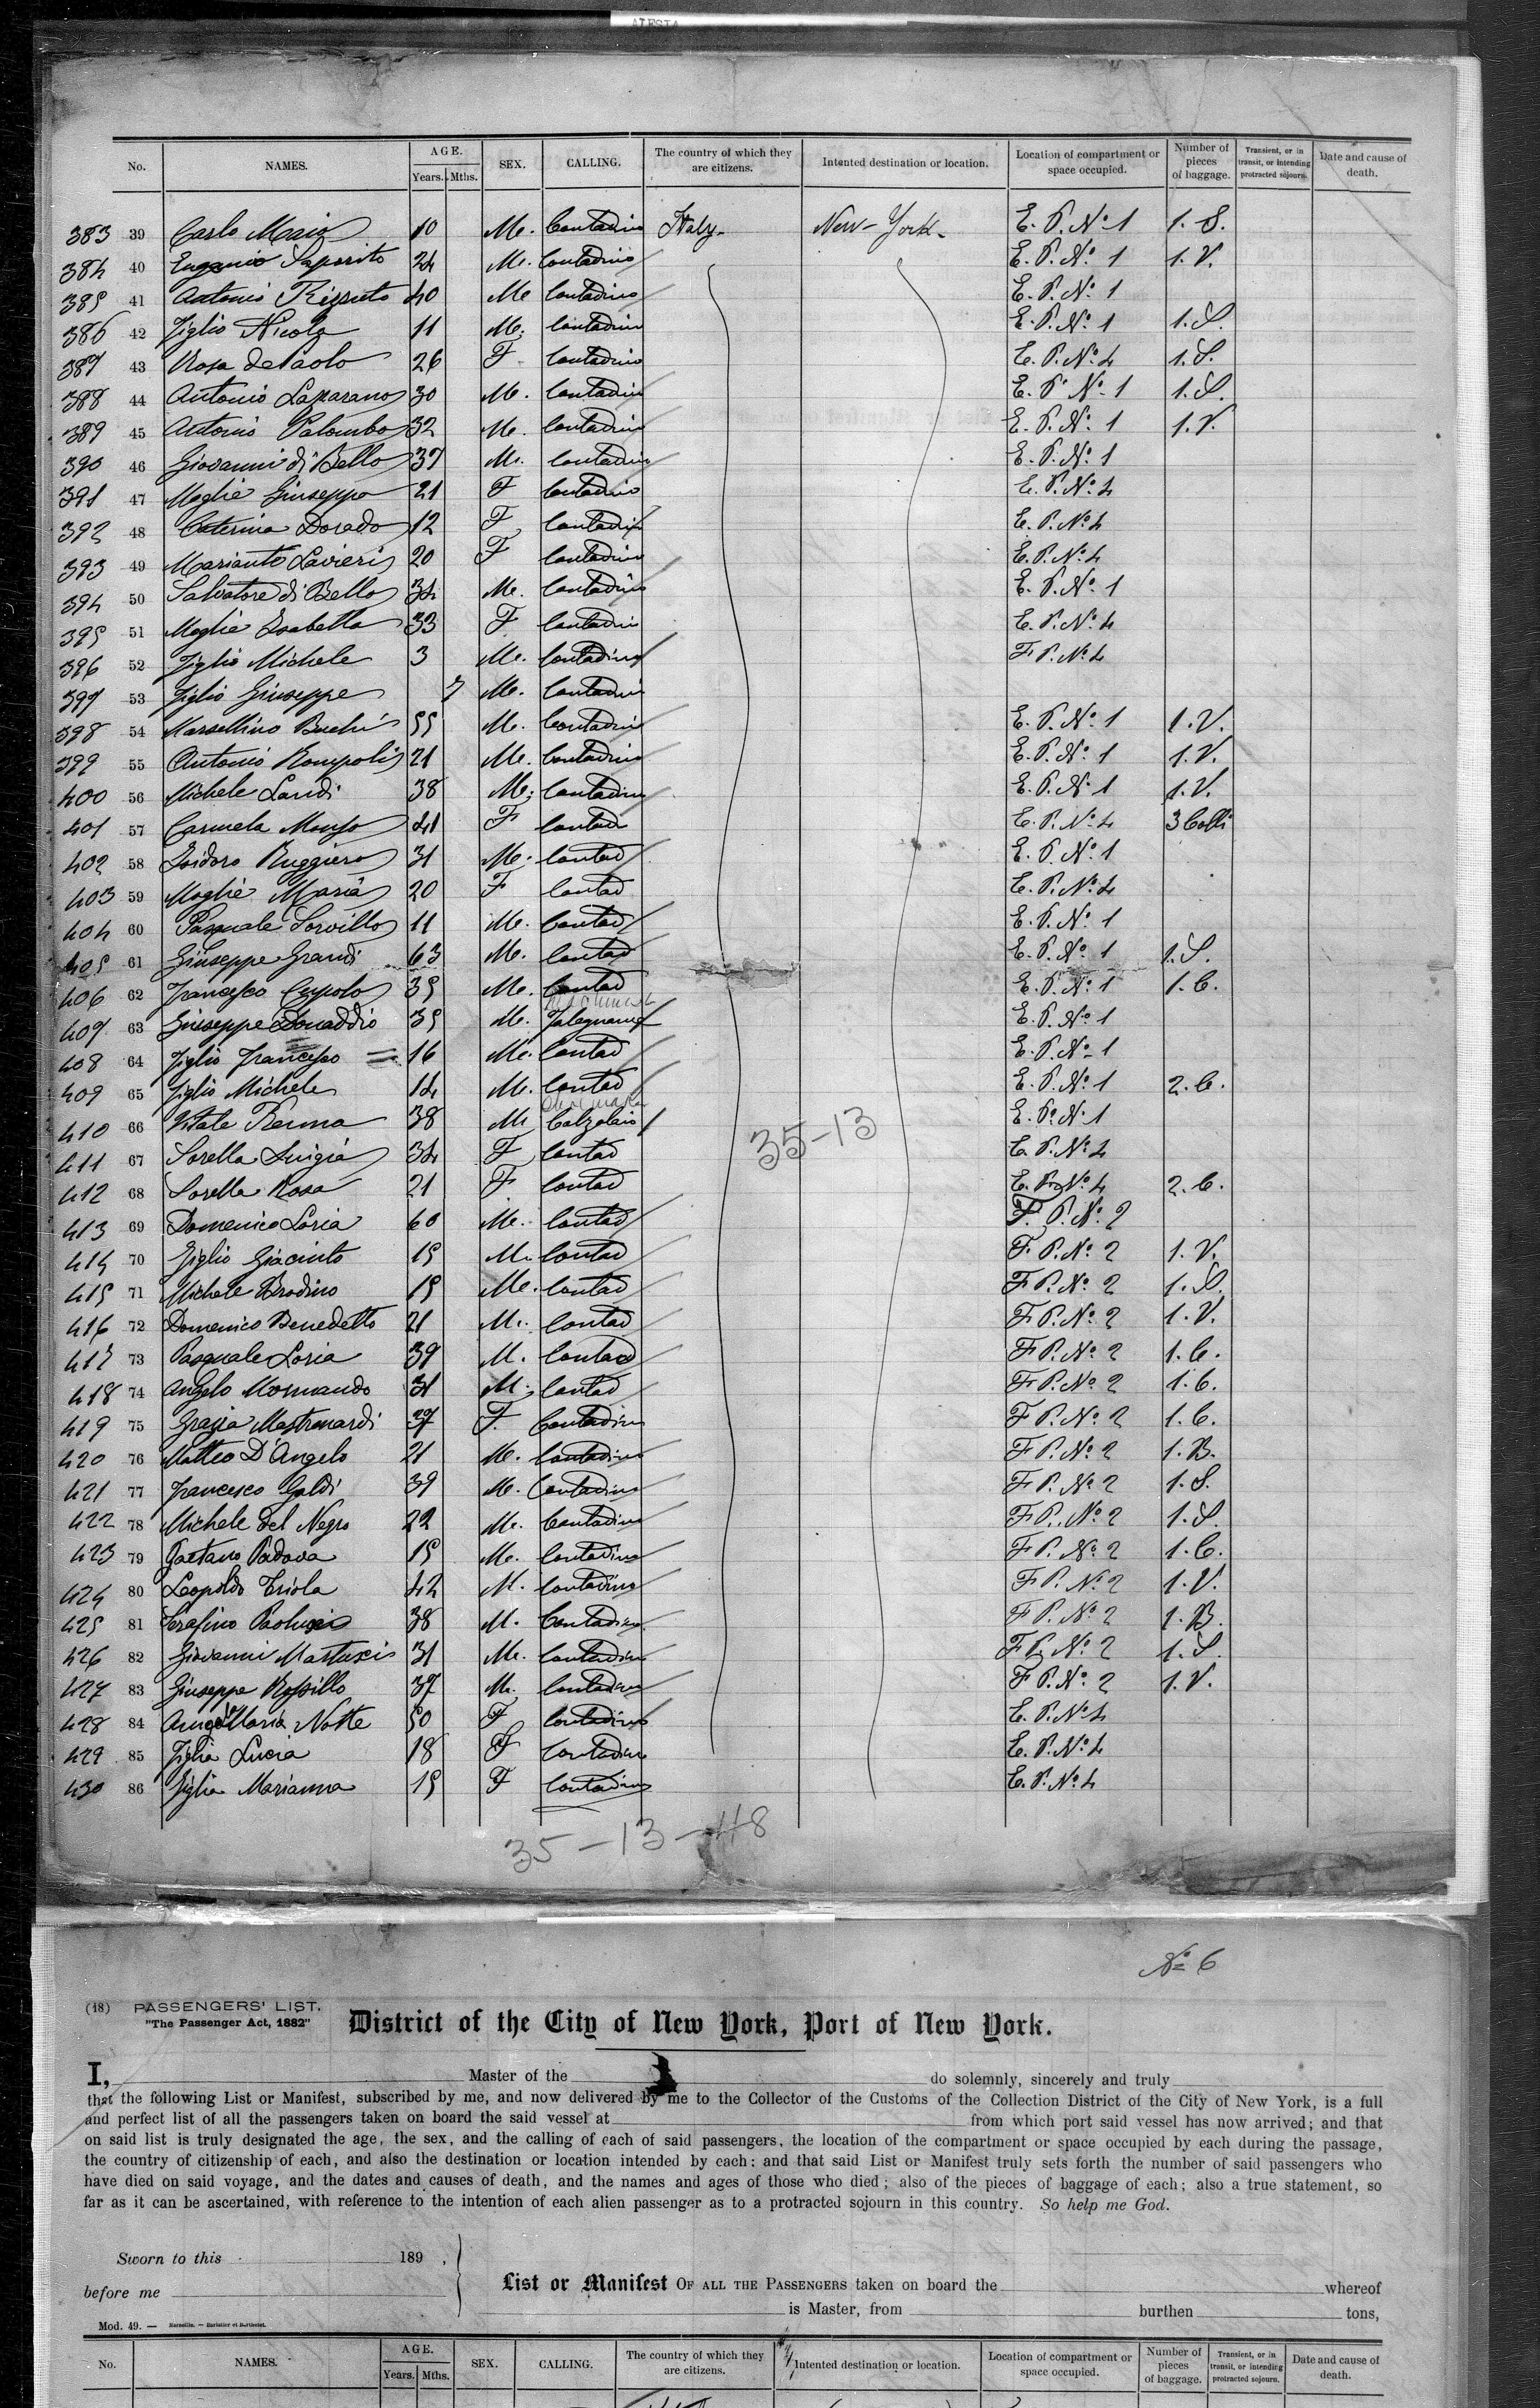 ALESIA
No. NAMES. AGE. Years. Mths. SEX. CALLING. The country of which they are citizens. Intented destination or location. Location of compartment or space occupied. Number of pieces of baggage. Transient, or in transit, or intending protracted sojourn. Date and cause of death.
383 39 Carlo Maio 10 M. Contadino Italy New-York E. P. No 1 1. S.
384 40 Eugenio Saporito 24 M. Contadino E. P. No 1 1. V.
385 41 Antonio 40 M Contadino E. P. No 1
386 42 Figlio Nicola 11 M. Contadino E. P. No 1 1. S.
387 43 Rosa de Paolo 26 F Contadino E. P. No 4 1. S.
388 44 Antonio 30 M. Contadino E. P. No 1 1. S.
389 45 Antonio Palombo 32 M. Contadino E. P. No 1 1. V.
390 46 Giovanni di Bello 37 M. Contadino E. P. No 1
391 47 Moglie Giuseppa 21 F Contadino E. P. No 4
392 48 Caterina Dorado 12 F Contadino E. P. No 4
393 49 Lavieri 20 F Contadino E. P. No 4
394 50 Salvatore di Bello 34 M. Contadino E. P. No 1
395 51 Moglie Isabella 33 F Contadin E. P. No 4
396 52 Figlio Michele 3 M. Contadino F P. No 4
397 53 Figlio Giuseppe 7 M. Contadin
398 54 Marsellino 55 M. Contadin E. P. No 1 1. V.
399 55 Antonio Rompoli 21 M. Contadino E. P. No 1 1. V.
400 56 Michele Landi 38 M. Contadino E. P. No 1 1. V.
401 57 Carmela 41 F Contad E. P. No 4 3 Colli
402 58 Isidoro Ruggiero 31 M. Contad E. P. No 1
403 59 Moglie Maria 20 F Contad E. P. No 4
404 60 Pasquale Sorvillo 11 M. Contad E. P. No 1
405 61 Giuseppe Grandi 63 M. Contad E. P. No 1 1. S.
406 62 Francesco Cupolo 35 M. Contad E. P. No 1 1. C.
407 63 Giuseppe Donaddio 35 M. Falegname E. P. No 1
408 64 Figlio Francesco 16 M. Contad E. P. No 1
409 65 Figlio Michele 14 M. Contad E. P. No 1 2. C.
410 66 Vitale Renna 38 M Calzolaio E. P. No 1
411 67 Sorella Luigia 34 F Contad E. P. No 4
35-13
412 68 Sorella Rosa 21 F Contad E. P. No 4 2. C.
413 69 Domenico Loria 60 M. Contad F. P. No 2
414 70 Figlio Giacinto 15 M. Contad F P. No 2 1. V.
415 71 Michele Brodino 15 M. Contad F P. No 2 1. S.
416 72 Domenico Benedetto 21 M. Contad F P. No 2 1. V.
417 73 Pasquale Loria 39 M. Contad F P. No 2 1. C.
418 74 Angelo Mormando 31 M. Contad F P. No 2 1. C.
419 75 Grazia Mastronardi 37 F. Contadino F P. No 2 1. C.
420 76 Matteo D'Angelo 21 M. Contadino F P. No 2 1. B.
421 77 Francesco Galdi 39 M. Contadino F P. No 2 1. S.
422 78 Michele del Negro 22 M. Contadino F P. No 2 1. S.
423 79 Gaetano Padova 15 M. Contadino F P. No 2 1. C.
424 80 Leopoldo Triola 42 M. Contadino F P. No 2 1. V.
425 81 Serafino Paolucci 38 M. Contadino F P. No 2 1. B.
426 82 Giovanni Mastuxis 31 M. Contadino F P. No 2 1. S.
427 83 Giuseppe Rossillo 37 M. Contadino F P. No 2 1. V.
428 84 Angela Maria Notte 50 F Contadino E. P. No 4
429 85 Figlia Lucia 18 F Contadin E. P. No 4
430 86 Figlia Marianna 15 F Contadino E. P. No 4
35-13-48
No 6
(18) PASSENGERS' LIST.
"The Passenger Act, 1882"
District of the City of New York, Port of New York.
I, Master of the do solemnly, sincerely and truly
that the following List or Manifest, subscribed by me, and now delivered by me to the Collector of the Customs of the Collection District of the City of New York, is a full
and perfect list of all the passengers taken on board the said vessel at from which port said vessel has now arrived; and that
on said list is truly designated the age, the sex, and the calling of each of said passengers, the location of the compartment or space occupied by each during the passage,
the country of citizenship of each, and also the destination or location intended by each: and that said List or Manifest truly sets forth the number of said passengers who
have died on said voyage, and the dates and causes of death, and the names and ages of those who died; also of the pieces of baggage of each; also a true statement, so
far as it can be ascertained, with reference to the intention of each alien passenger as to a protracted sojourn in this country. So help me God.
Sworn to this 189 ,
before me
List or Manifest OF ALL THE PASSENGERS taken on board the whereof
is Master, from burthen tons,
Mod. 49. — Marseille. — Barlatier et Barthelet.
No. NAMES. AGE. Years. Mths. SEX. CALLING. The country of which they are citizens. Intented destination or location. Location of compartment or space occupied. Number of pieces of baggage. Transient, or in transit, or intending protracted sojourn. Date and cause of death.